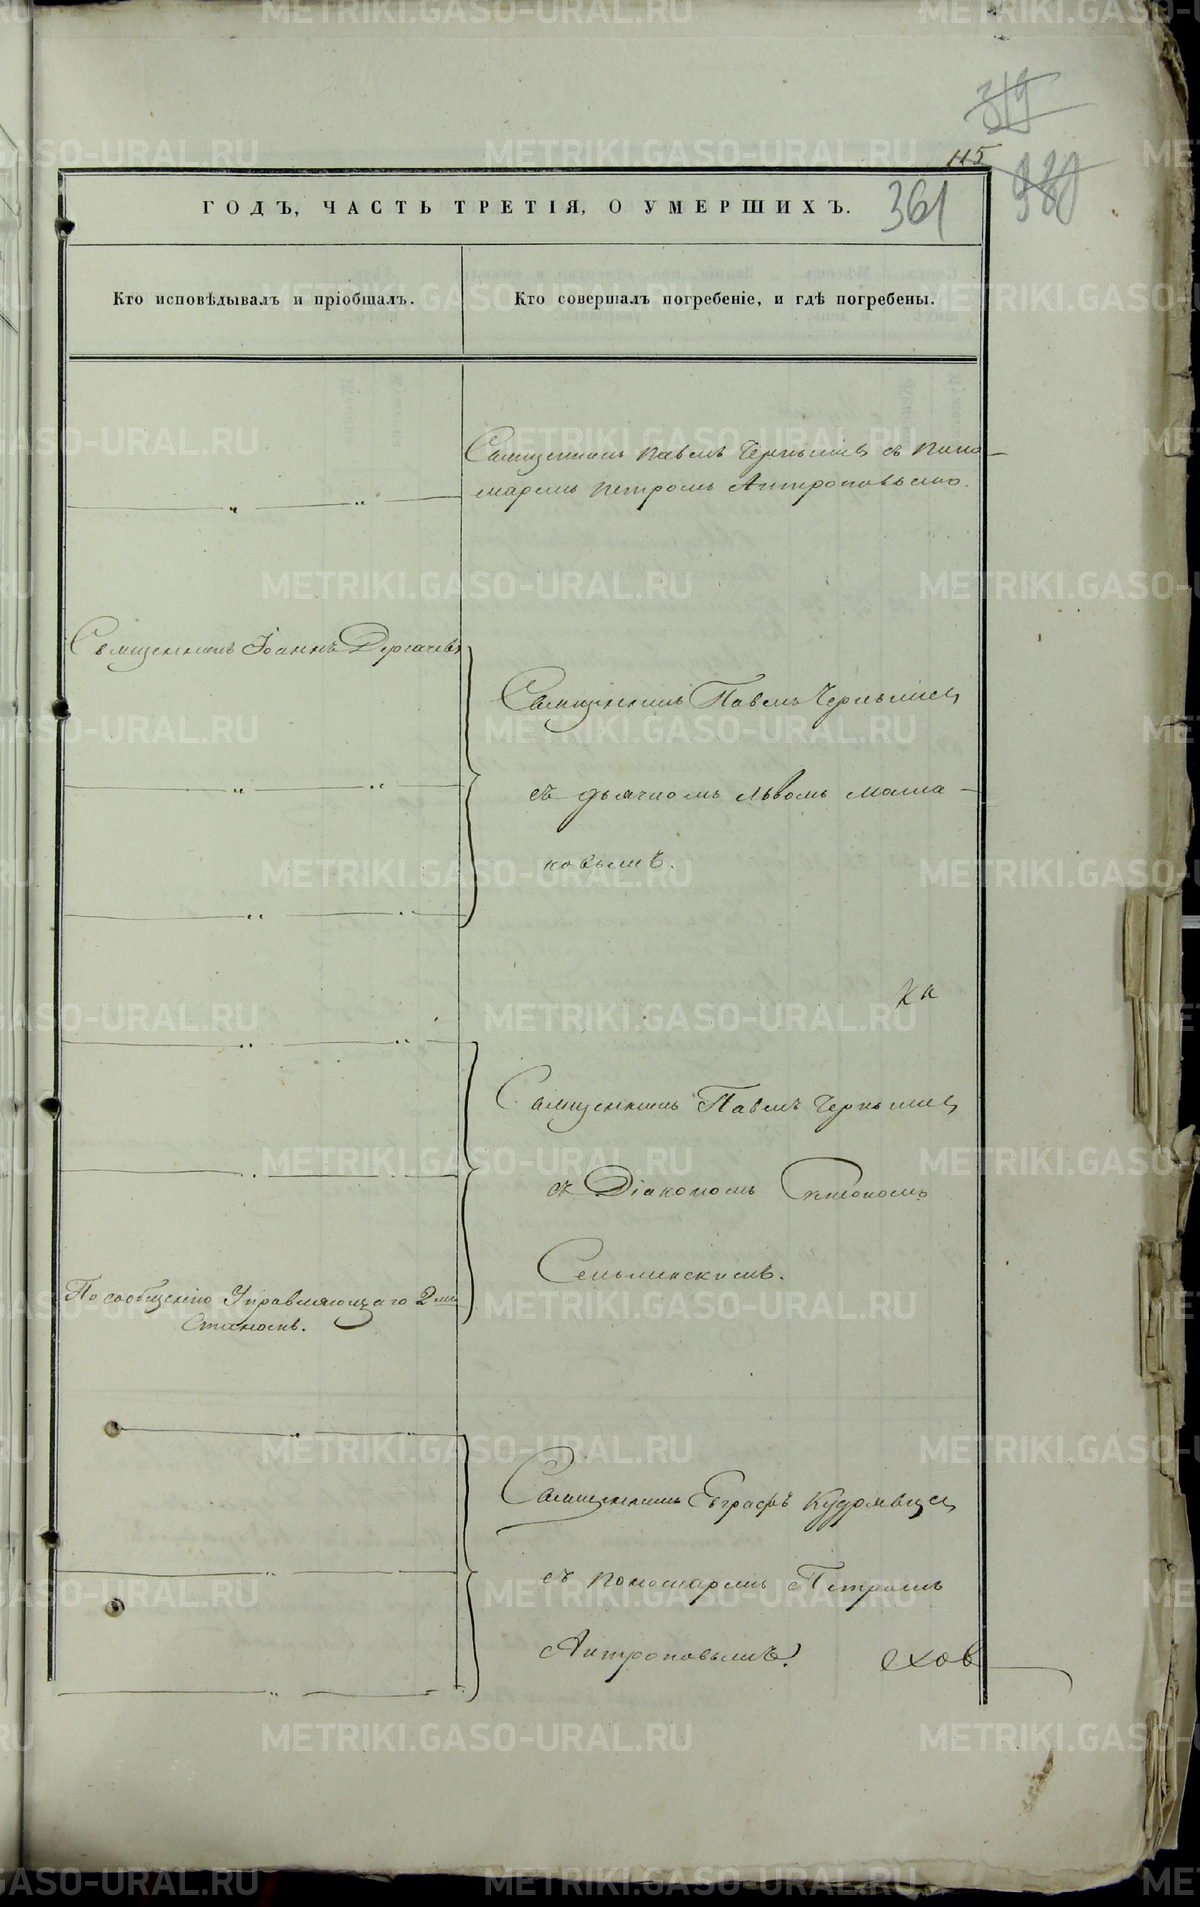 319
115
320
361
ГОДЪ, ЧАСТЬ ТРЕТІЯ, О УМЕРШИХЪ.
Кто исповѣдывалъ и пріобщалъ.
Кто совершалъ погребеніе, и гдѣ погребены.
Священникъ Павелъ Чернышев съ Поно-
маремъ Петромъ Антроповымъ.
Священникъ Іоаннъ Дергачевъ
Священникъ Павелъ Чернышев
съ дьячкомъ Львомъ
ковымъ.
Священникъ Павелъ Чернышев
съ Діакономъ
По сообщенію Управляющаго 2мъ
Станомъ.
Священникъ Евграфъ Кудрявцев
съ пономаремъ Петромъ
Антроповымъ.
ехов
METRIKI.GASO-URAL.RU